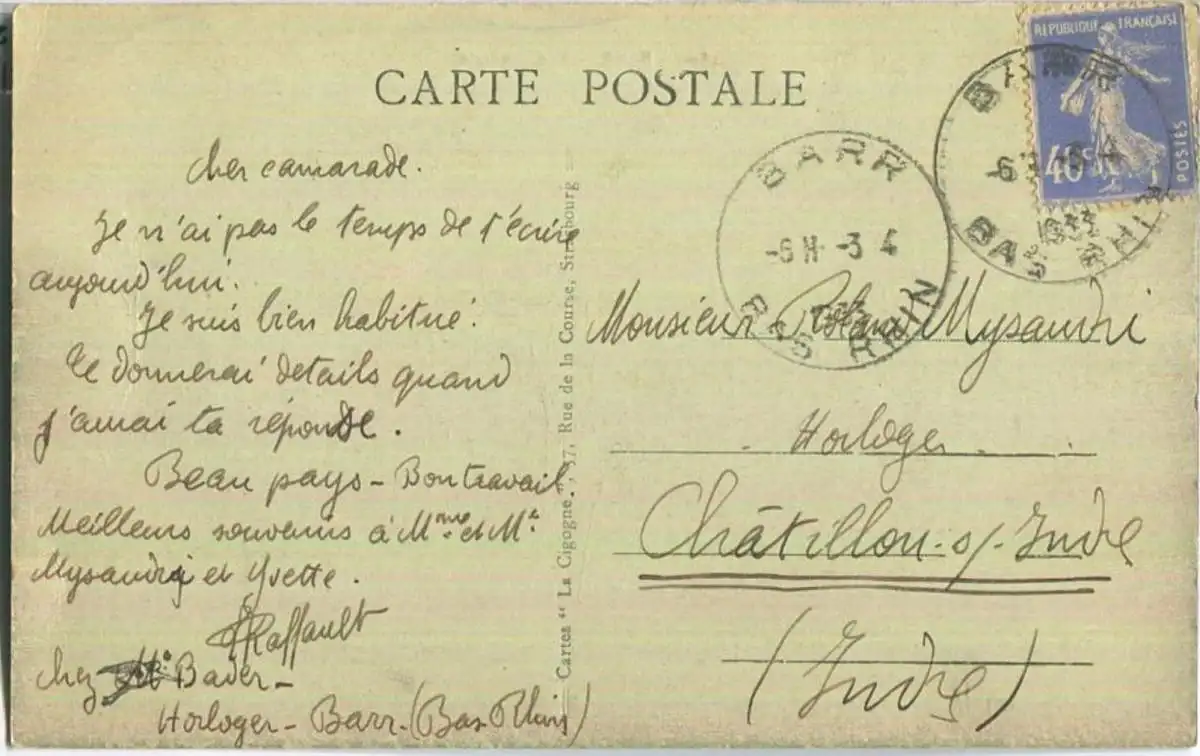 CARTE POSTALE
REPUBLIQUE FRANÇAISE
40c
POSTES
BARR
BAS RHIN
BARR
-6 H -3 4
BAS RHIN
Cher camarade.
Je n'ai pas le temps de t'écrire
aujourd'hui.
Je suis bien habitué.
Te donnerai détails quand
j'aurai ta réponse.
Beau pays - Bon travail.
Meilleurs souvenirs à Mme et Mr
Mysandri et Yvette.
Raffault
chez Mr Bader -
Horloger - Barr. (Bas Rhin)
Cartes "La Cigogne", 37, Rue de la Course, Strasbourg
Monsieur Roland Mysandri
Horloger
Châtillon-s/-Indre
(Indre)